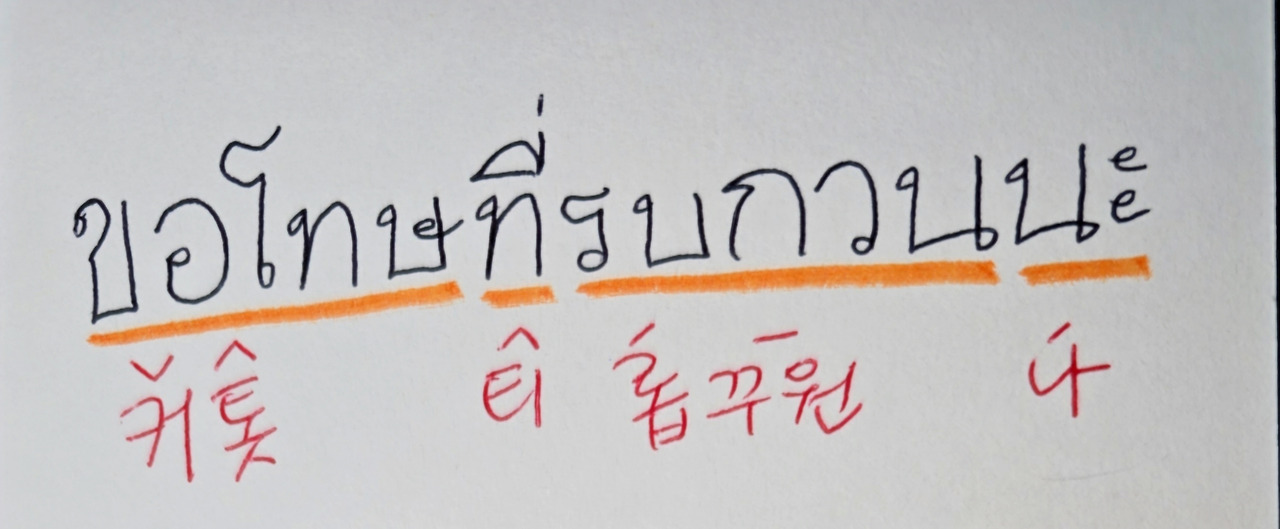 ขอโทษที่รบกวนนะ
커톳 티 롭꾸원 나